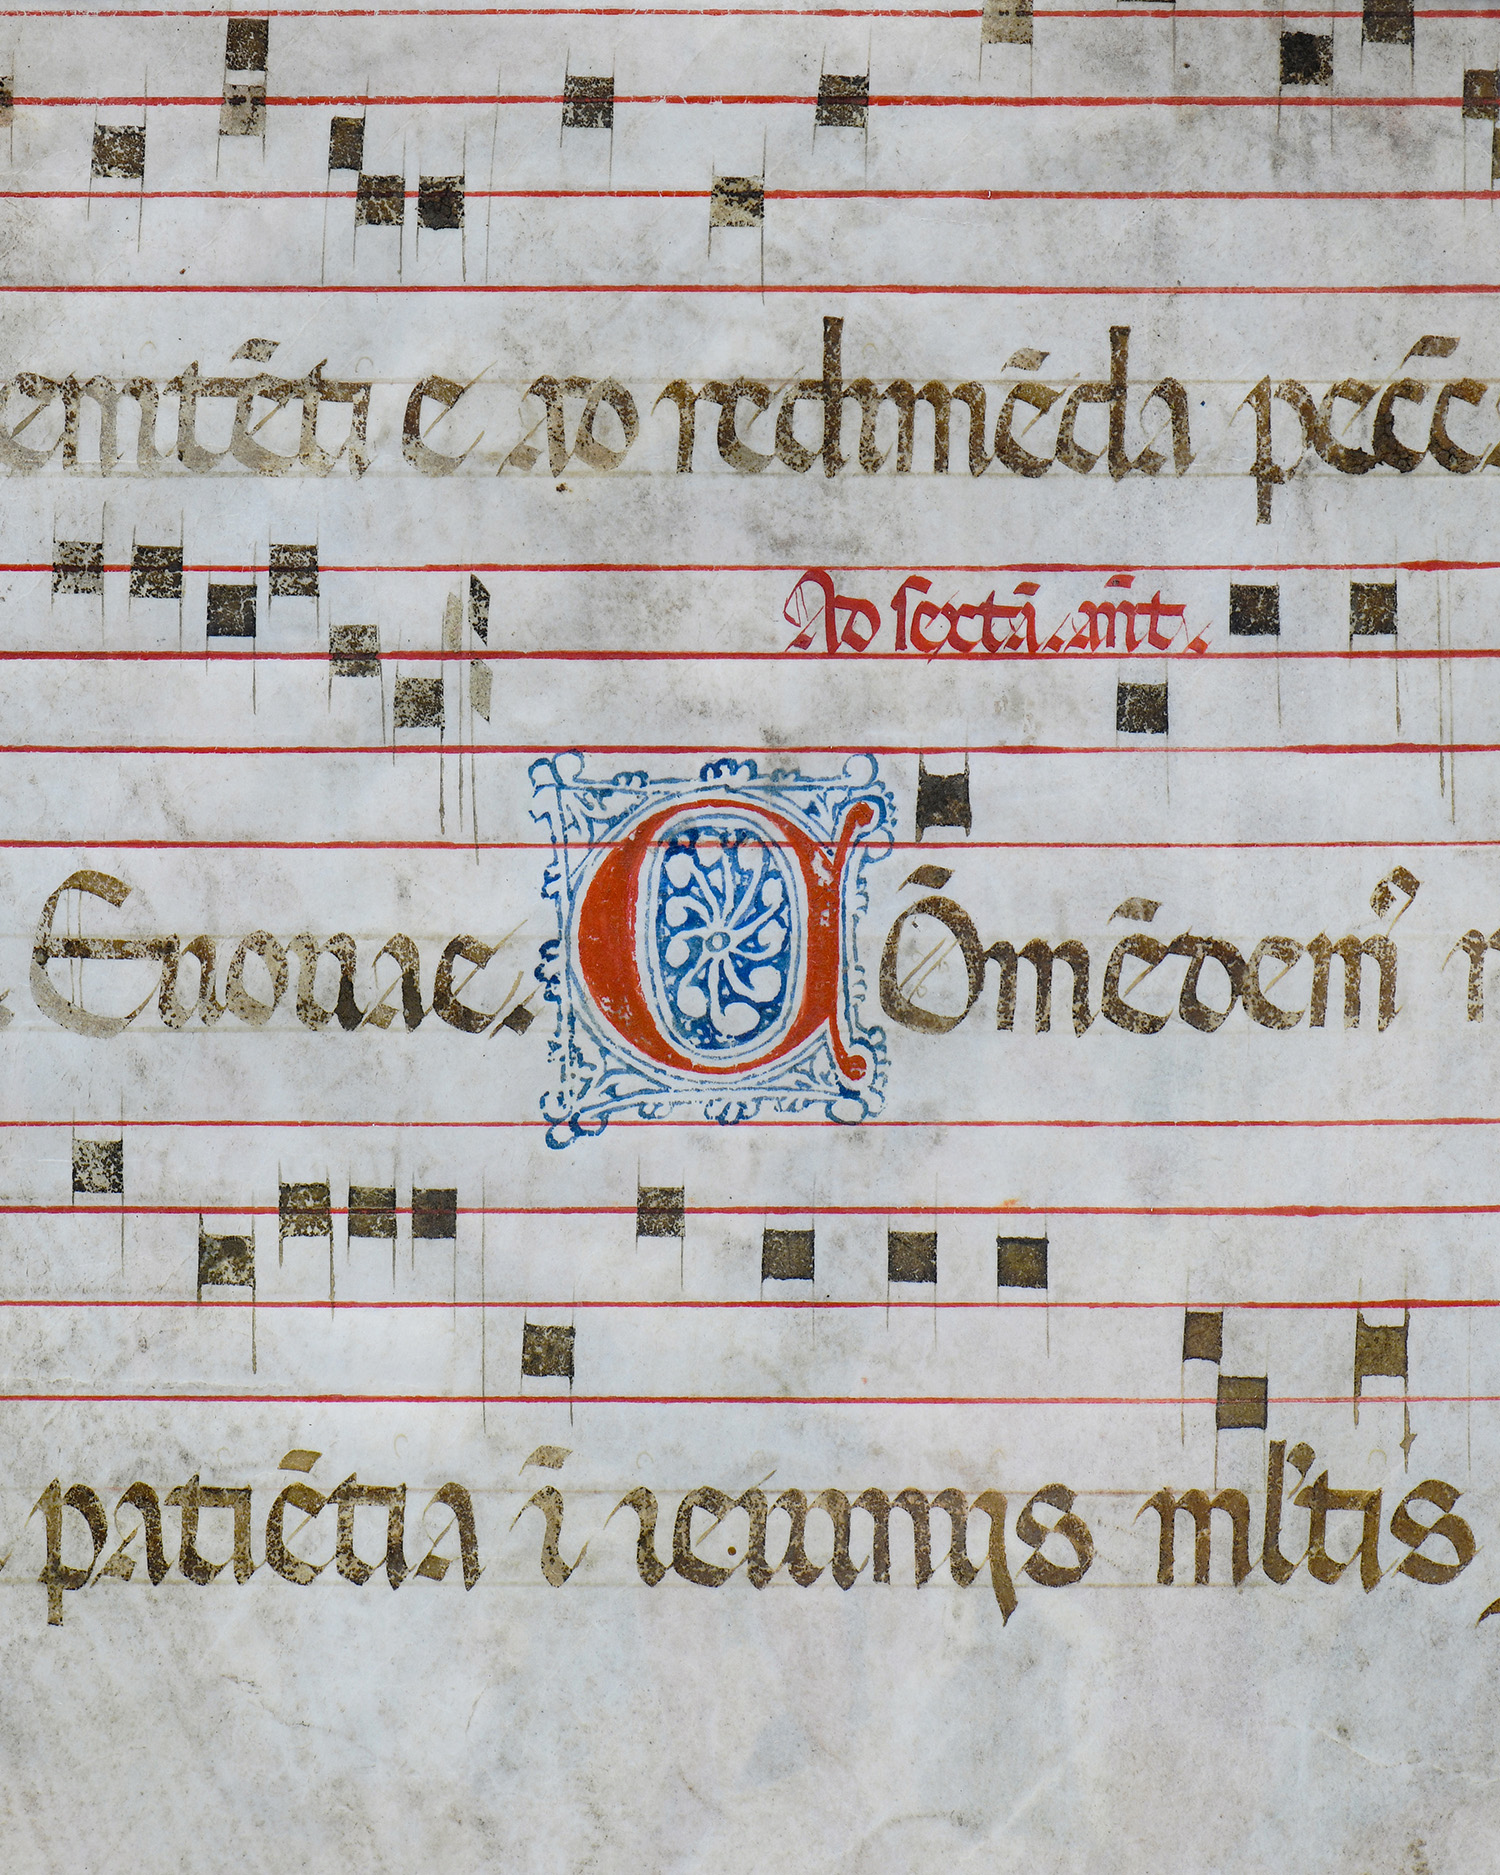 enitēti e ad redimēda pecc̄
Ad sextā. an̄t.
Euouae. CŌmēdem᾽
patiētia ī ieiunijs ml᾽tis